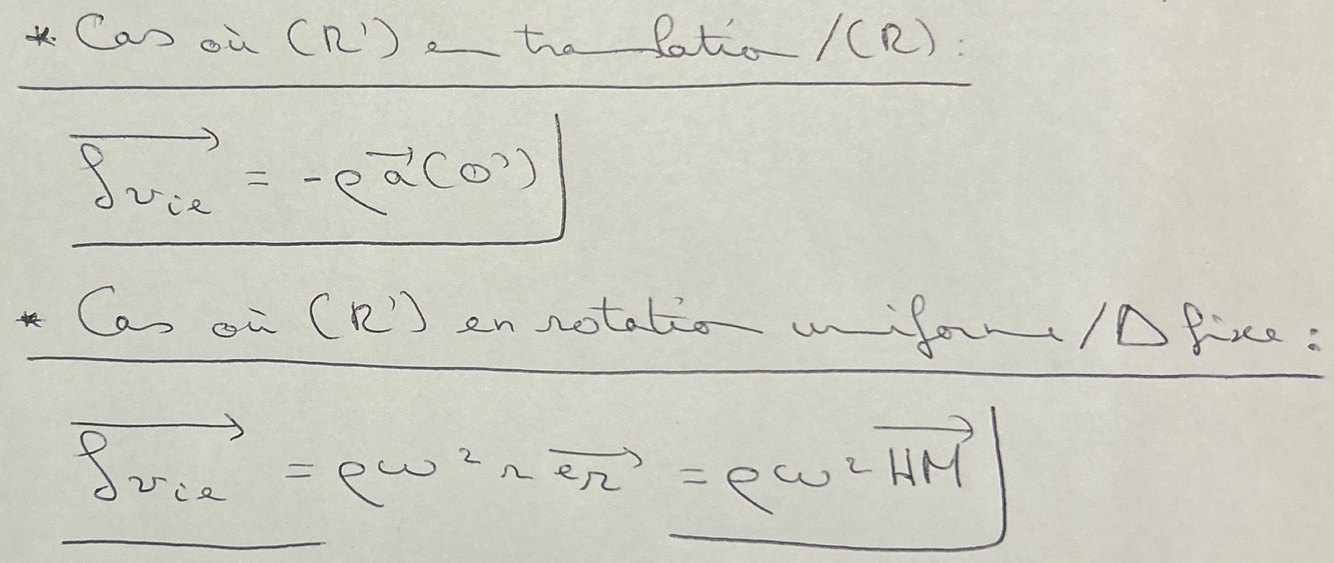 * Cas où (R') en translation /(R) :
$\overrightarrow{f_{v_{ie}}} = -\rho \vec{a}(O')$
* Cas où (R') en rotation uniforme / Δ fixe :
$\overrightarrow{f_{v_{ie}}} = \rho \omega^2 r \overrightarrow{e_r} = \rho \omega^2 \overrightarrow{HM}$